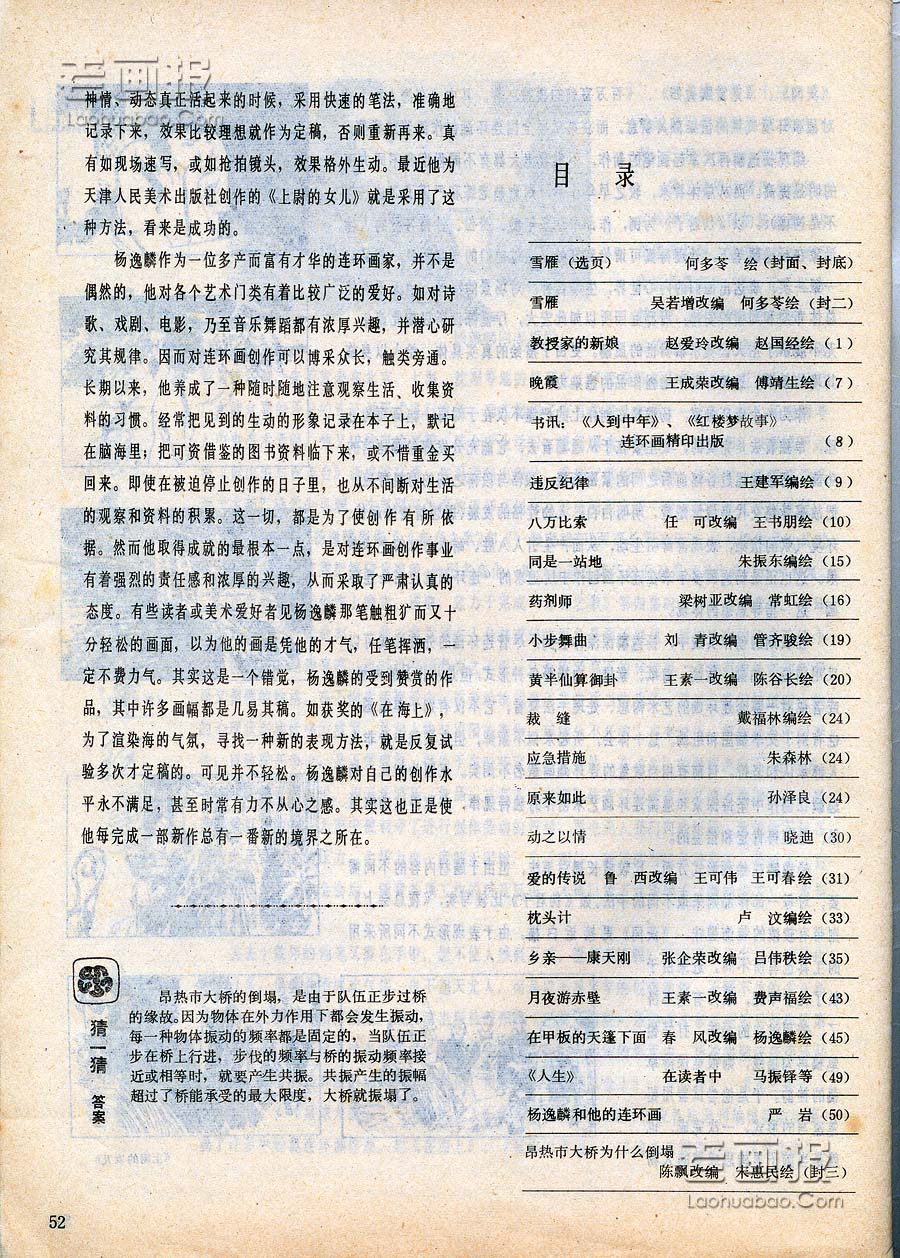 老画报
Laohuabao.Com
神情、动态真正活起来的时候，采用快速的笔法，准确地
记录下来，效果比较理想就作为定稿，否则重新再来。真
有如现场速写，或如抢拍镜头，效果格外生动。最近他为
天津人民美术出版社创作的《上尉的女儿》就是采用了这
种方法，看来是成功的。
杨逸麟作为一位多产而富有才华的连环画家，并不是
偶然的，他对各个艺术门类有着比较广泛的爱好。如对诗
歌、戏剧、电影，乃至音乐舞蹈都有浓厚兴趣，并潜心研
究其规律。因而对连环画创作可以博采众长，触类旁通。
长期以来，他养成了一种随时随地注意观察生活、收集资
料的习惯。经常把见到的生动的形象记录在本子上，默记
在脑海里；把可资借鉴的图书资料临下来，或不惜重金买
回来。即使在被迫停止创作的日子里，也从不间断对生活
的观察和资料的积累。这一切，都是为了使创作有所依
据。然而他取得成就的最根本一点，是对连环画创作事业
有着强烈的责任感和浓厚的兴趣，从而采取了严肃认真的
态度。有些读者或美术爱好者见杨逸麟那笔触粗犷而又十
分轻松的画面，以为他的画是凭他的才气，任笔挥洒，一
定不费力气。其实这是一个错觉，杨逸麟的受到赞赏的作
品，其中许多画幅都是几易其稿。如获奖的《在海上》，
为了渲染海的气氛，寻找一种新的表现方法，就是反复试
验多次才定稿的。可见并不轻松。杨逸麟对自己的创作水
平永不满足，甚至时常有力不从心之感。其实这也正是使
他每完成一部新作总有一番新的境界之所在。
猜一猜 答案
昂热市大桥的倒塌，是由于队伍正步过桥
的缘故。因为物体在外力作用下都会发生振动，
每一种物体振动的频率都是固定的，当队伍正
步在桥上行进，步伐的频率与桥的振动频率接
近或相等时，就要产生共振。共振产生的振幅
超过了桥能承受的最大限度，大桥就振塌了。
52
目 录
雪雁（选页） 何多苓 绘（封面、封底）
雪雁 吴若增改编 何多苓绘（封二）
教授家的新娘 赵爱玲改编 赵国经绘（1）
晚霞 王成荣改编 傅靖生绘（7）
书讯：《人到中年》、《红楼梦故事》
连环画精印出版 （8）
违反纪律 王建军编绘（9）
八万比索 任 可改编 王书朋绘（10）
同是一站地 朱振东编绘（15）
药剂师 梁树亚改编 常虹绘（16）
小步舞曲 刘 青改编 管齐骏绘（19）
黄半仙算御卦 王素一改编 陈谷长绘（20）
裁 缝 戴福林编绘（24）
应急措施 朱森林（24）
原来如此 孙泽良（24）
动之以情 晓迪（30）
爱的传说 鲁 西改编 王可伟 王可春绘（31）
枕头计 卢 汶编绘（33）
乡亲——康天刚 张企荣改编 吕伟秩绘（35）
月夜游赤壁 王素一改编 费声福绘（43）
在甲板的天篷下面 春 风改编 杨逸麟绘（45）
《人生》 在读者中 马振铎等（49）
杨逸麟和他的连环画 严 岩（50）
昂热市大桥为什么倒塌
陈飘改编 宋惠民绘（封三）
老画报
Laohuabao.Com